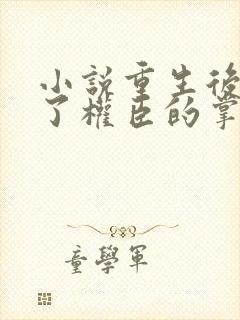 小說重生後
了權臣的掌
童學軍